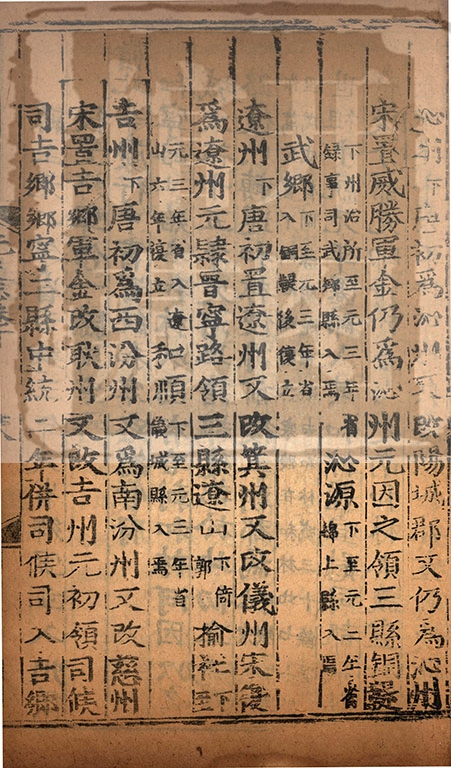 沁州下唐初爲沁州又改陽城郡又仍爲沁州
宋置威勝軍金仍爲沁州元因之領三縣銅鞮
下州治所至元三年省
錄事司武鄉縣入焉
沁源下至元三年省
綿上縣入焉
武鄉下至元三年省
入銅鞮後復立
遼州下唐初置遼州又改箕州又改儀州宋復
爲遼州元隸晉寧路領三縣遼山下倚
郭
榆社下
至
元三年省入遼
山六年復立
和順下至元三年省
儀城縣入焉
吉州下唐初爲西汾州又爲南汾州又改慈州
宋置吉鄉軍金改耿州又改吉州元初領司候
司吉鄉鄉寧三縣中統二年併司候司入吉鄉